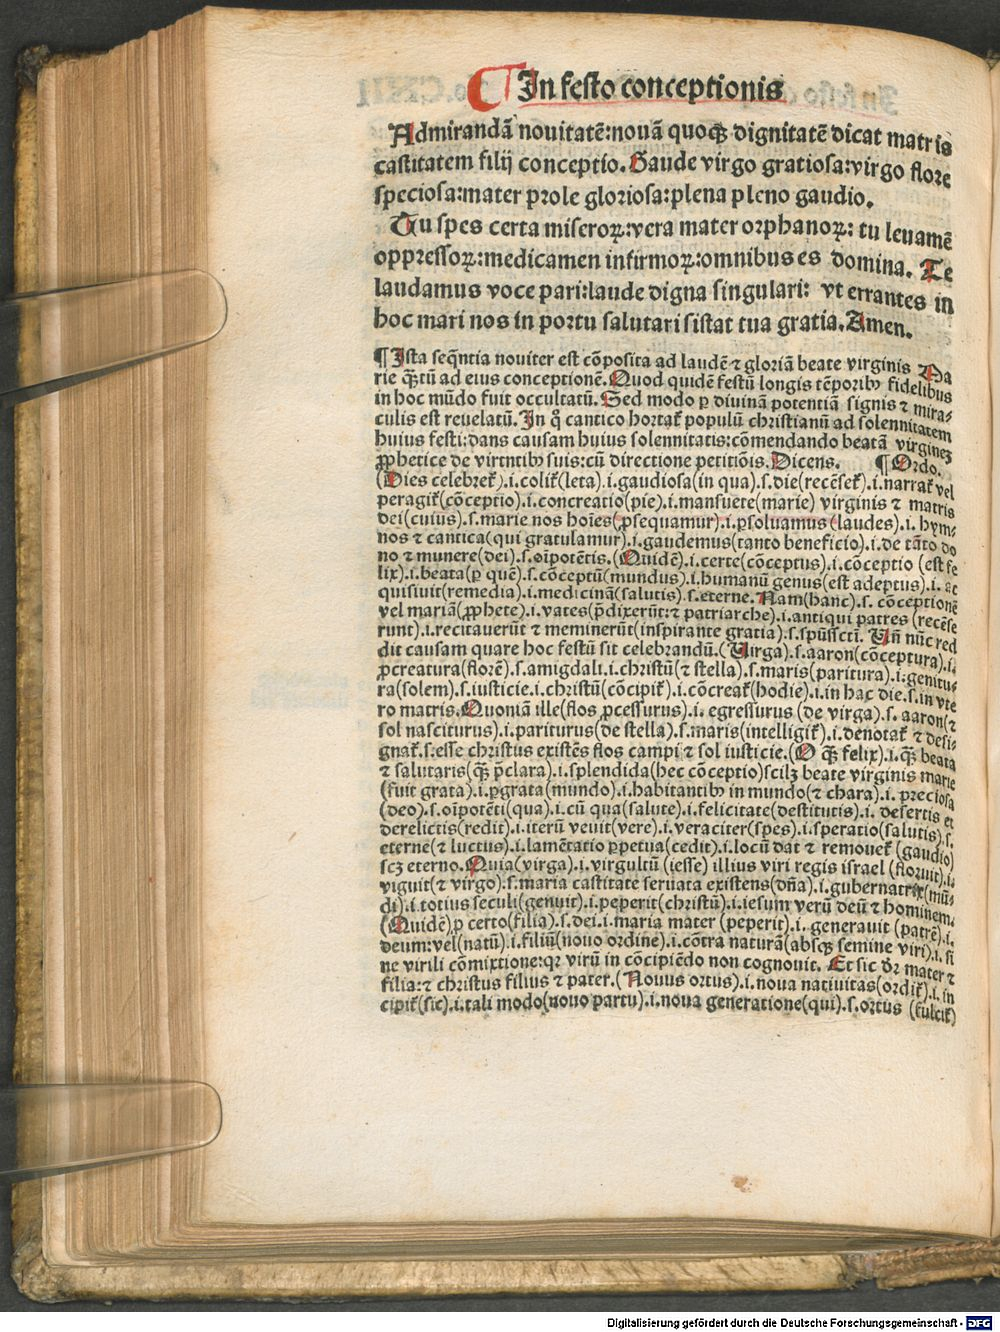 In festo conceptionis
Admirandā nouitatē:nouā quoqꝫ dignitatē dicat matris
castitatem filij conceptio. Gaude virgo gratiosa:virgo flore
speciosa:mater prole gloriosa:plena pleno gaudio.
Tu spes certa miseroꝝ:vera mater orphanoꝝ: tu leuamē
oppressoꝝ:medicamen infirmoꝝ:omnibus es domina. Te
laudamus voce pari:laude digna singulari: vt errantes in
hoc mari nos in portu salutari sistat tua gratia. Amen.
¶ Ista seq̄ntia nouiter est cōposita ad laudē ⁊ gloriā beate virginis Ma
rie q̄stū ad eius conceptionē. Quod quidē festū longis tēporibꝰ fidelibus
in hoc mūdo fuit occultatū. Sed modo ꝑ diuinā potentiā signis ⁊ mira-
culis est reuelatū. In q̊ cantico hortat̄ populū christianū ad solennitatem
huius festi:dans causam huius solennitatis:cōmendando beatā virgineꝫ
ꝓphetice de virtutibꝰ suis:cū directione petitiōis. Dicens. ¶ Ordo.
(Dies celebret̄).i.colit̄(leta).i.gaudiosa(in qua).s.die(recēset̄).i.narrat̄ vel
peragit̄(cōceptio).i.concreatio(pie).i.mansuete(marie) virginis ⁊ matris
dei(cuius).s.marie nos hoīes(ꝓsequamur).i.ꝑsoluamus(laudes).i. hym-
nos ⁊ cantica(qui gratulamur).i.gaudemus(tanto beneficio).i.de tāto do
no ⁊ munere(dei).s.oīpotētis.(Quidē).i.certe(cōceptus).i.cōceptio (est fe
lix).i.beata(ꝑ quē).s.cōceptū(mundus).i.humanū genus(est adeptus).i. ac
quisiuit(remedia).i.medicinā(salutis).s.eterne. Nam(hanc).s. cōceptionē
vel mariā(ꝓphete).i.vates(p̄dixerūt:⁊ patriarche).i.antiqui patres (recēse
runt).i.recitauerūt ⁊ meminerūt(inspirante gratia).s.spūssctī. Vñ nūc red
dit causam quare hoc festū sit celebrandū.(Virga).s.aaron(cōceptura).i.
ꝓcreatura(florē).s.amigdali.i.christū(⁊ stella).s.maris(paritura).i.genitu-
ra(solem).s.iusticie.i.christū(cōcipit̄).i.cōcreat̄(hodie).i.in hac die.s.in vte
ro matris. Quoniā ille(flos ꝓcessurus).i. egressurus (de virga).s. aaron(⁊
sol nasciturus).i.pariturus(de stella).s.maris(intelligit̄).i.denotat̄ ⁊ desi-
gnat̄.s.esse christus existēs flos campi ⁊ sol iusticie.(O qꝫ felix).i.qꝫ beata
⁊ salutaris(qꝫ p̄clara).i.splendida(hec cōceptio)scilꝫ beate virginis marie
(fuit grata).i.ꝑgrata(mundo).i.habitantibꝰ in mundo(⁊ chara).i. preciosa
(deo).s.oīpotēti(qua).i.cū qua(salute).i.felicitate(destitutis).i. desertis et
derelictis(redit).i.iterū veuit(vere).i.veraciter(spes).i.speratio(salutis).s.
eterne(⁊ luctus).i.lamētatio ꝑpetua(cedit).i.locū dat ⁊ remouet̄ (gaudio)
scꝫ eterno. Quia(virga).i.virgultū (iesse) illius viri regis israel (floruit).i.
viguit(⁊ virgo).s.maria castitate seruata existens(dñā).i.gubernatrix(mū-
di).i.totius seculi(genuit).i.peperit(christū).i.iesum verū deū ⁊ hominem.
(Quidē) ꝑ certo(filia).s.dei.i.maria mater (peperit).i.generauit (patrē).i.
deum:vel(natū).i.filiū(nouo ordine).i.cōtra naturā(absqꝫ semine viri).i.si
ne virili cōmixtione:qꝛ virū in cōcipiēdo non cognouit. Et sic d̄r mater ⁊
filia:⁊ christus filius ⁊ pater.(Nouus ortus).i.noua natiuitas(ordit̄).i.in
cipit̄(sic).i.tali modo(nouo partu).i.noua generatione(qui).s.ortus (fulcit̄)
Digitalisierung gefördert durch die Deutsche Forschungsgemeinschaft - DFG